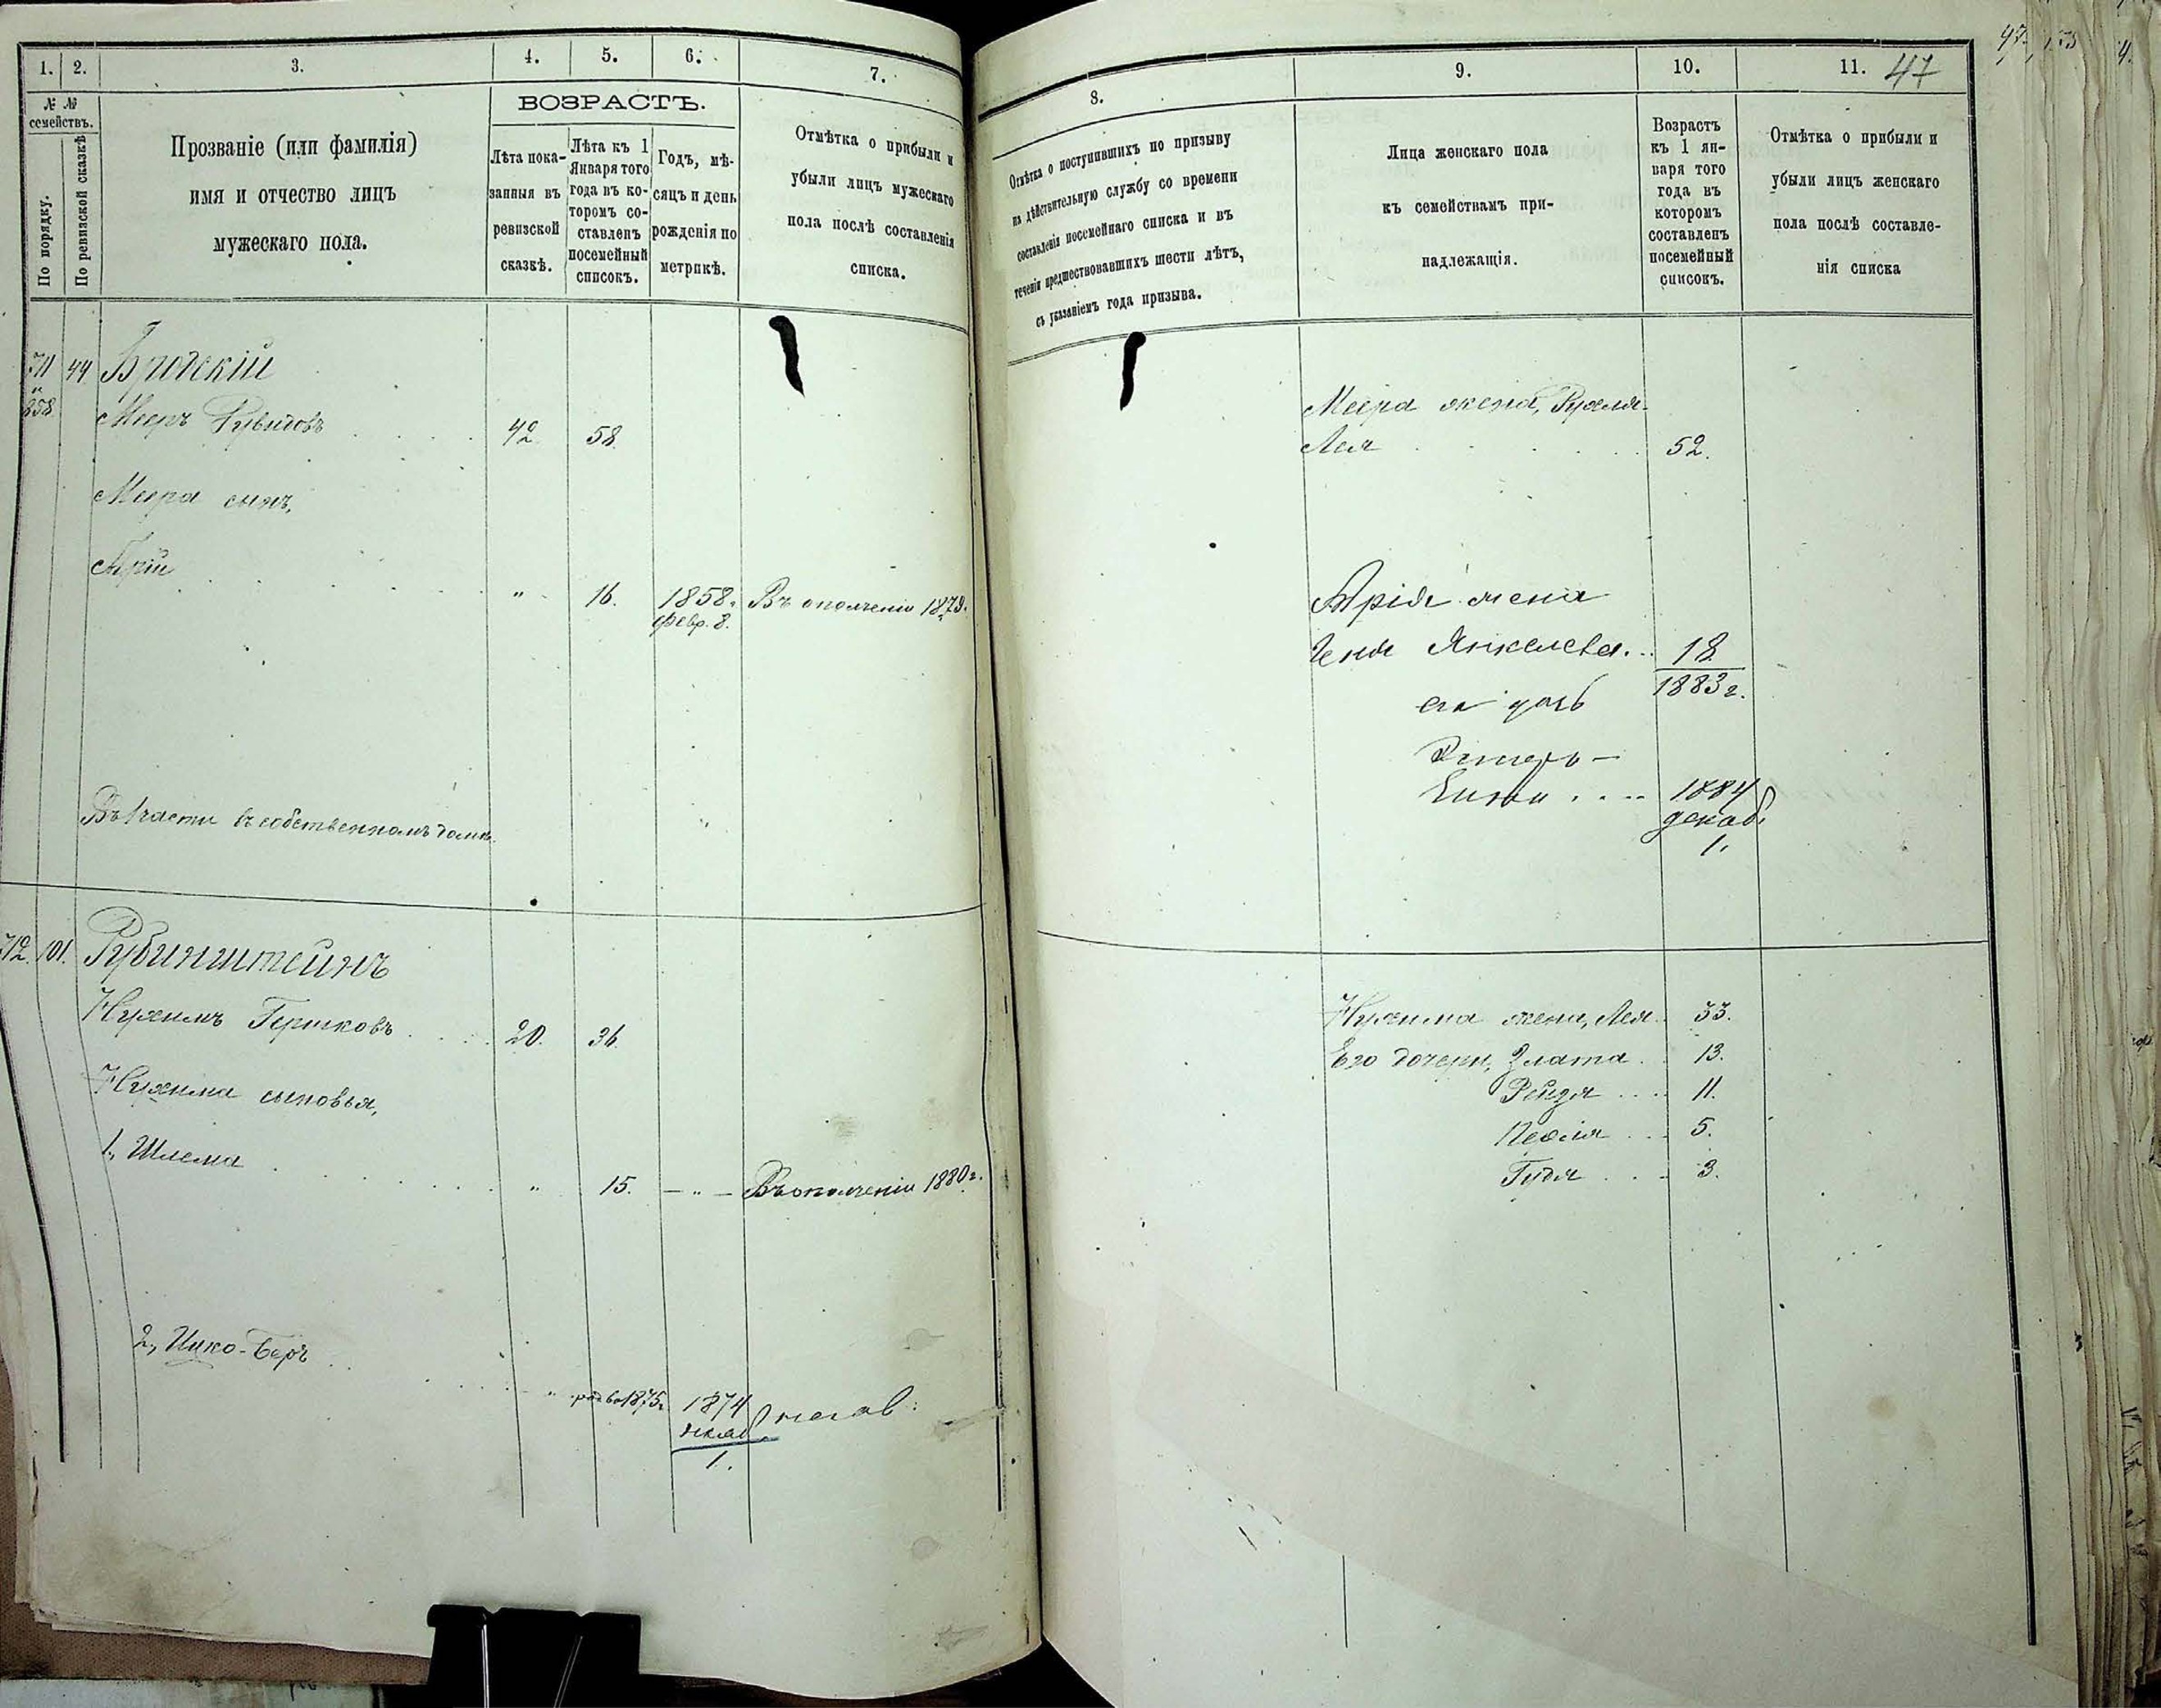 1.
2.
3.
4.
5.
6.
7.
№ №
семействъ.
По порядку.
По ревизской сказкѣ
Прозваніе (или фамилія)
имя и отчество лицъ
мужескаго пола.
ВОЗРАСТЪ.
Лѣта пока-
занныя въ
ревизской
сказкѣ.
Лѣта къ 1
Января того
года въ ко-
торомъ со-
ставленъ
посемейный
списокъ.
Годъ, мѣ-
сяцъ и день
рожденія по
метрикѣ.
Отмѣтка о прибыли и
убыли лицъ мужескаго
пола послѣ составленія
списка.
711 44 Бродскій
и
858
Мееръ Рувидовъ 42. 58.
Меера сынъ,
Арій " 16. 1858. Въ ополченіи 1879.
февр. 8.
Въ 1 части въ собственномъ домѣ.
712. 101. Рубинштейнъ
Нухимъ Гершковъ 20. 36.
Нухима сыновья,
1, Шлема " 15. — " — Въ ополченіи 1880 г.
2, Ицко-Беръ " род. въ 1875 г. 1874
декаб.
1.
8.
9.
10.
11.
47
Отмѣтка о поступившихъ по призыву
на дѣйствительную службу со времени
составленія посемейнаго списка и въ
теченіи предшествовавшихъ шести лѣтъ,
съ указаніемъ года призыва.
Лица женскаго пола
къ семействамъ при-
надлежащія.
Возрастъ
къ 1 ян-
варя того
года въ
которомъ
составленъ
посемейный
списокъ.
Отмѣтка о прибыли и
убыли лицъ женскаго
пола послѣ составле-
нія списка
Меера жена, Рухля-
Лея 52.
Арія жена
Геня Янкелева. 18
1883 г.
его дочь
Эстеръ-
Ента 1884
декаб.
1.
Нухима жена, Лея 33.
Его дочери, Злата 13.
Рейзя 11.
Песля 5.
Гудя 3.